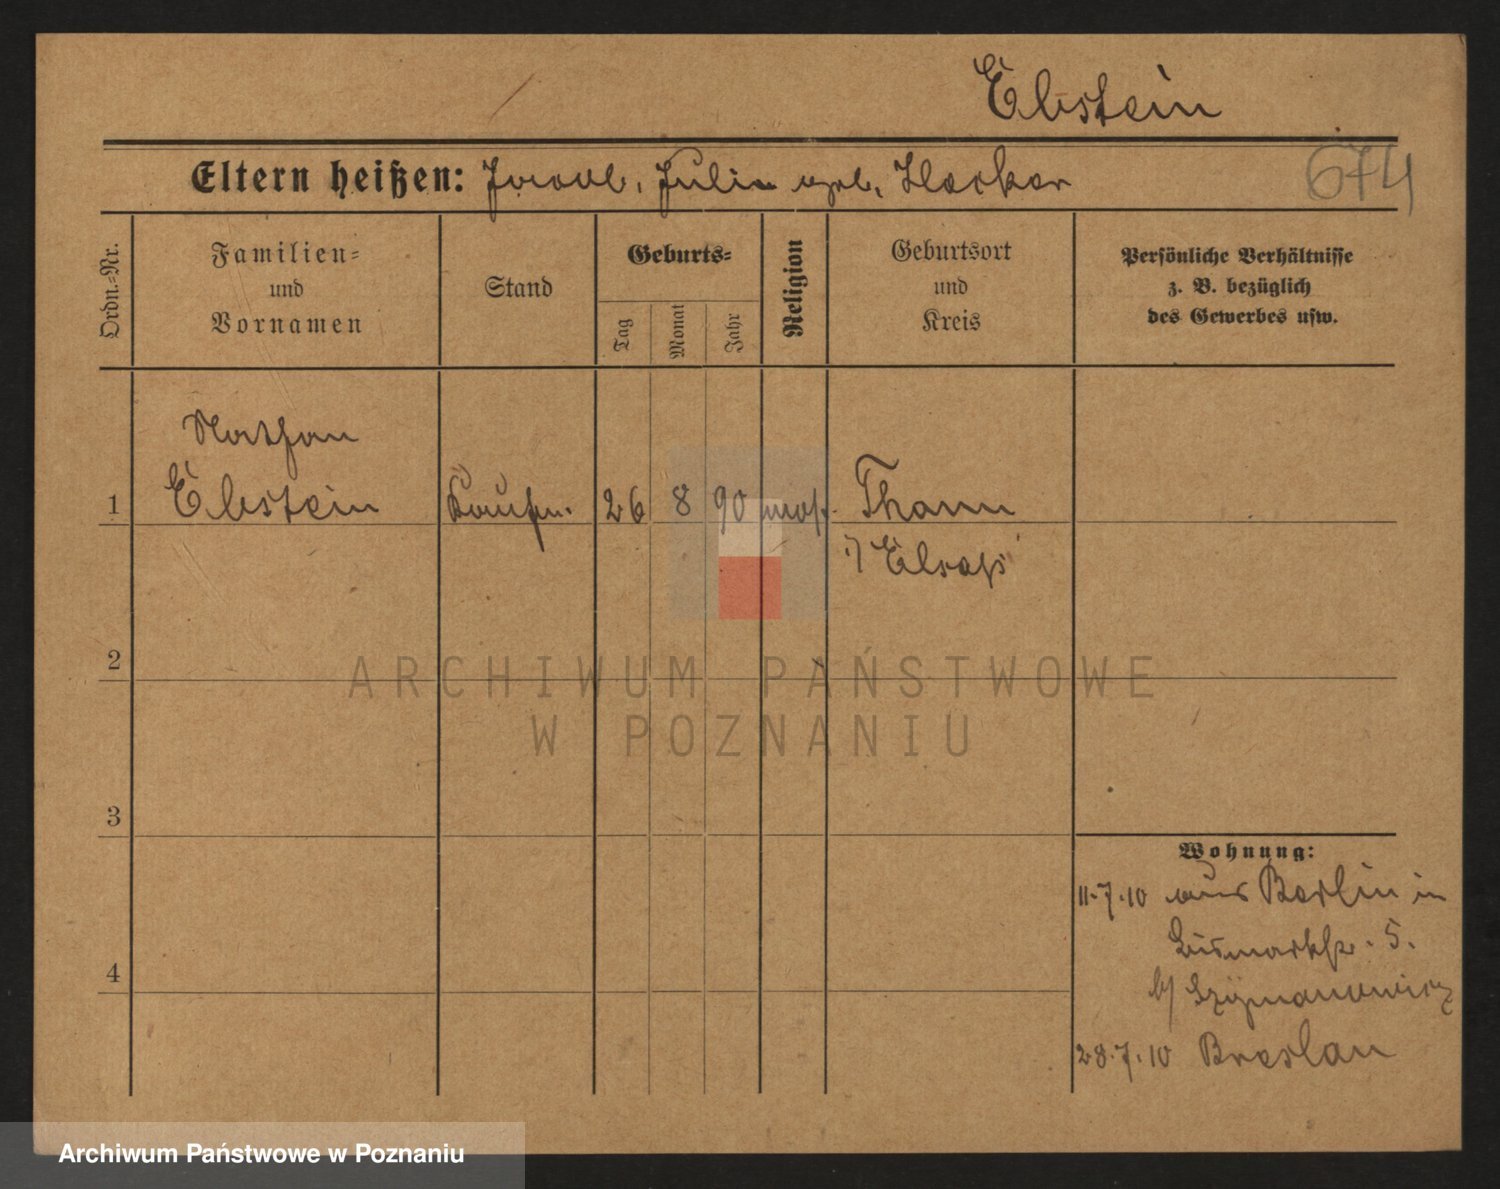 Ebstein
Eltern heißen: Jacob, Julie geb. Hecker
674
Ordn.=Nr.
Familien=
und
Vornamen
Stand
Geburts=
Tag
Monat
Jahr
Religion
Geburtsort
und
Kreis
Persönliche Verhältnisse
z. B. bezüglich
des Gewerbes usw.
Nathan
1 Ebstein Kaufm. 26 8 90 mos. Thann
i/ Elsaß
2
ARCHIWUM PAŃSTWOWE
W POZNANIU
3
Wohnung:
11.7.10 aus Berlin in
Bismarckstr. 5.
4
b/ Szymanowicz
28.7.10 Breslau
Archiwum Państwowe w Poznaniu